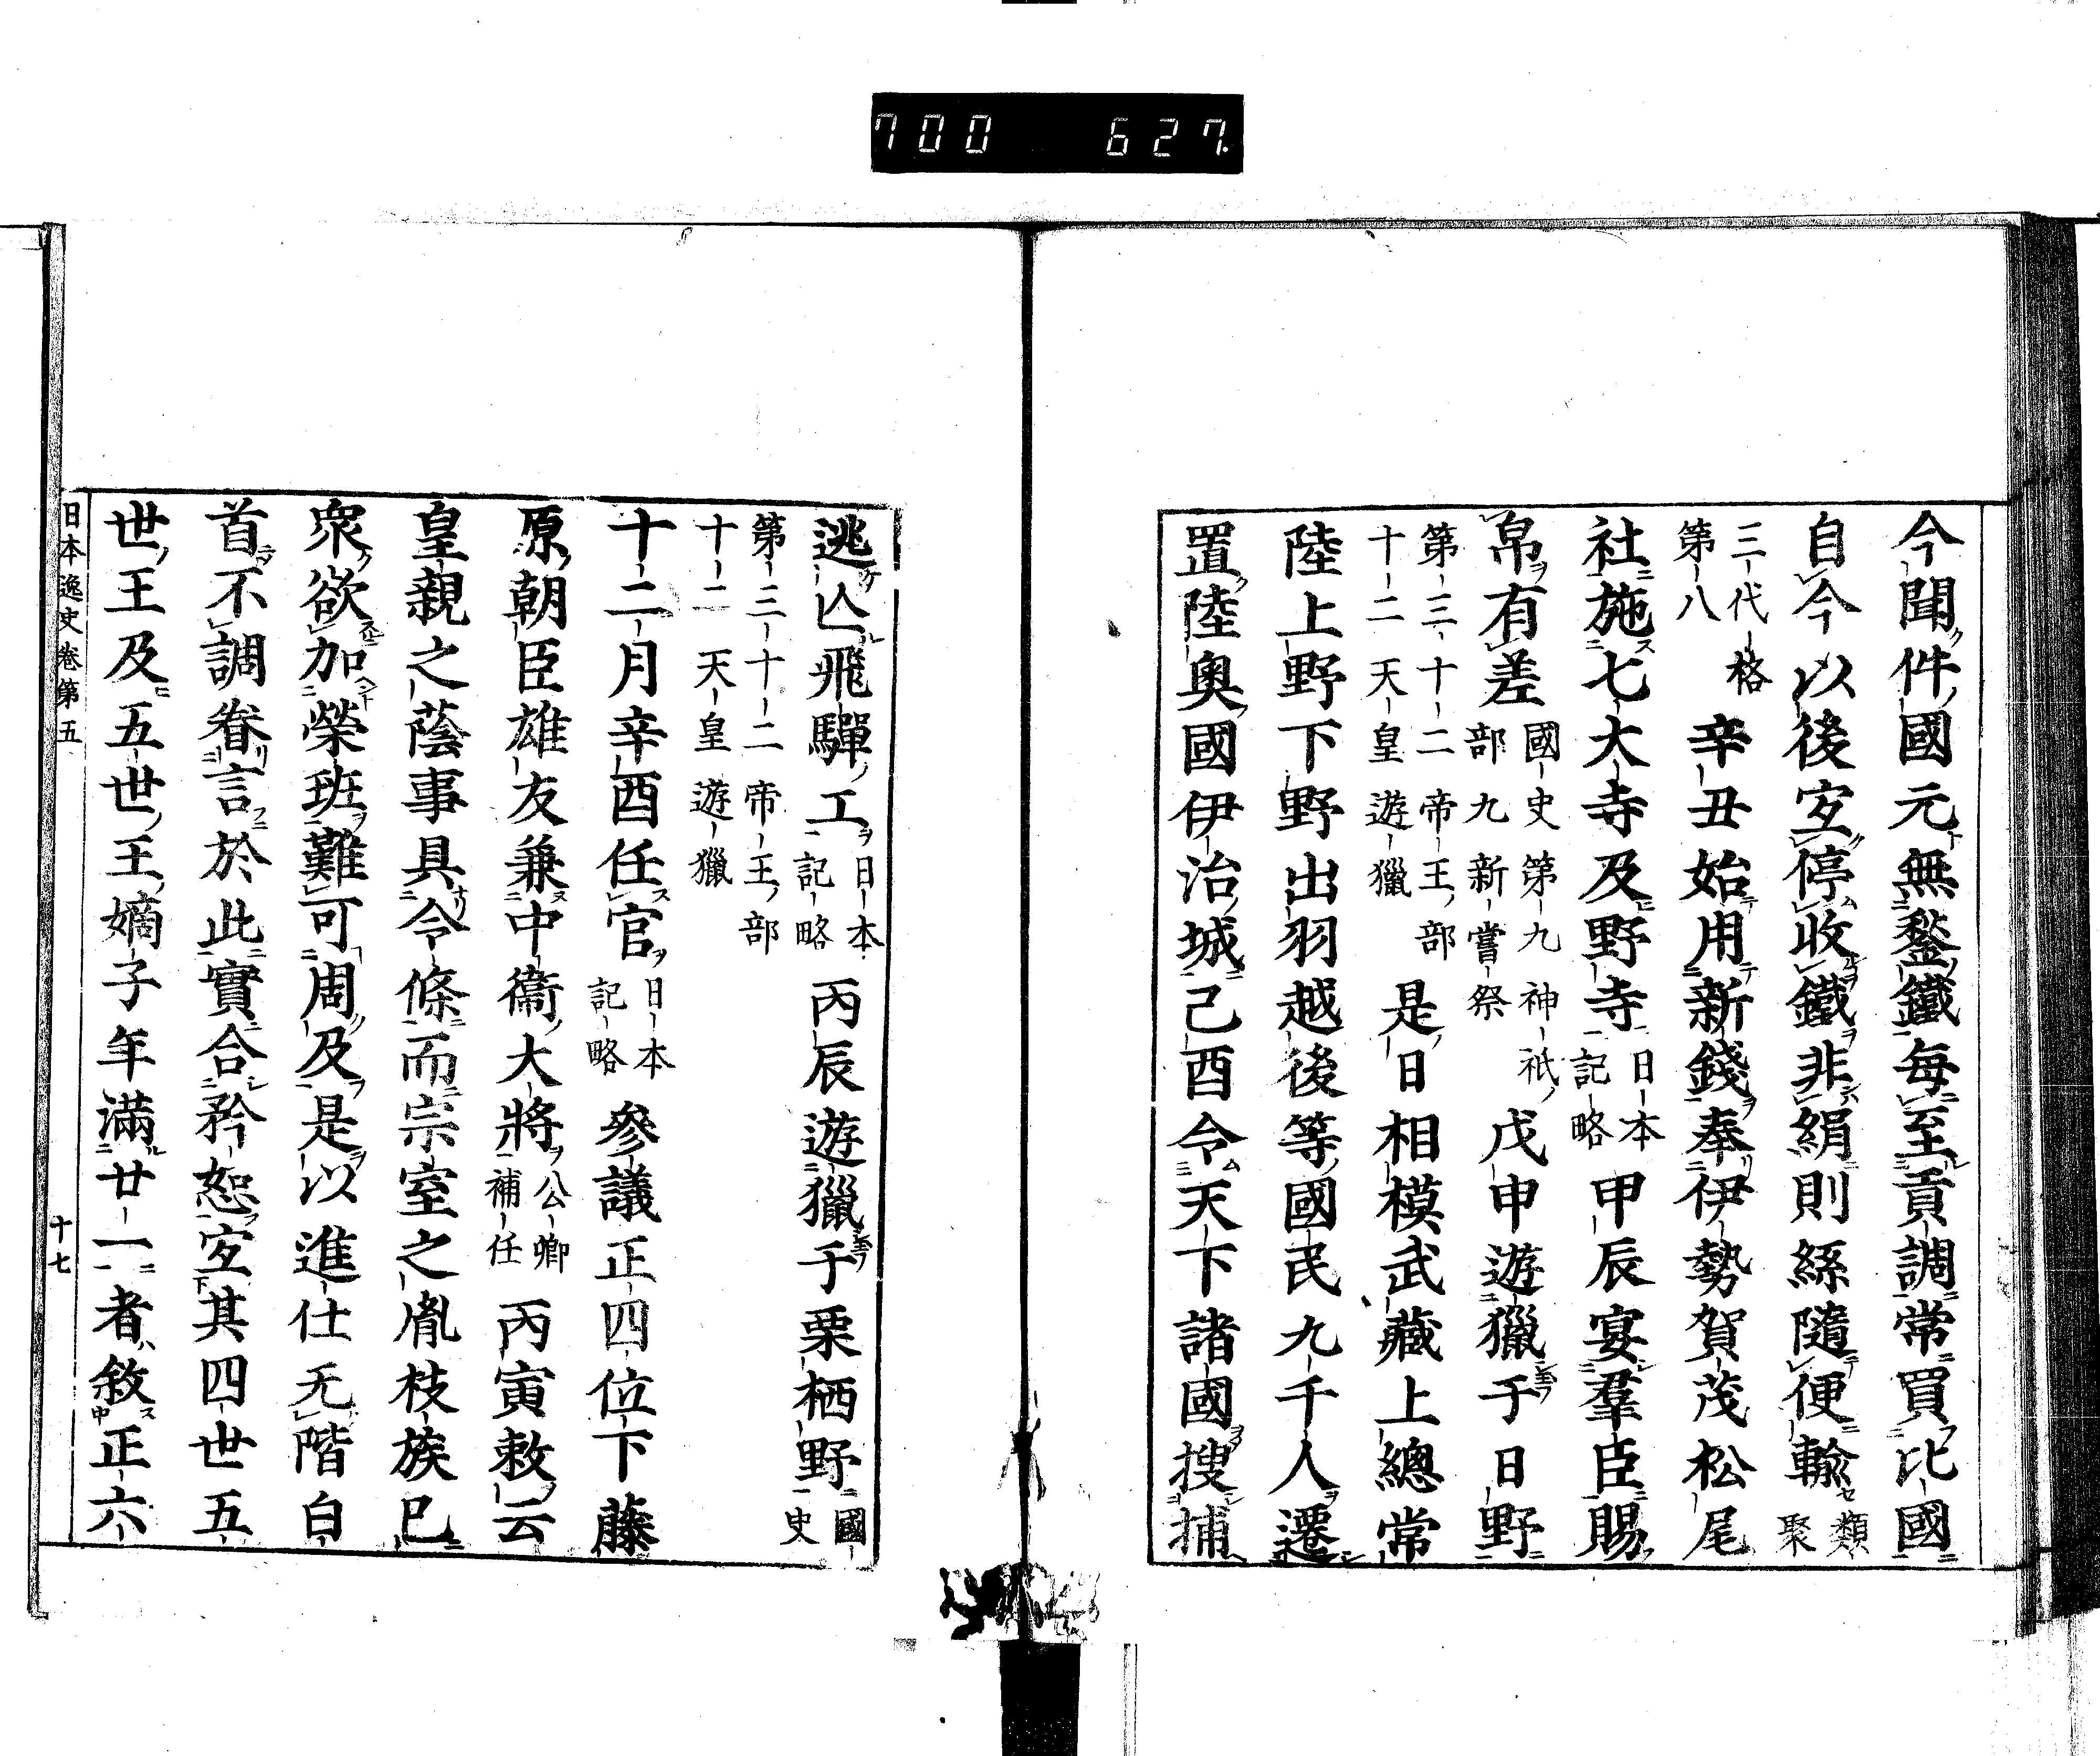 700 627
今聞件國元無鍫鐵每至貢調常買比國
自今以後宐停收鐵非絹則絲隨便輸類聚
三代格第八 辛丑始用新錢奉伊勢賀茂松尾
社施七大寺及野寺日本記略甲辰宴羣臣賜
帛有差國史第九神祇部九新嘗祭 戊申遊獵于日野
第三十二帝王部十二天皇遊獵 是日相模武藏上總常
陸上野下野出羽越後等國民九千人遷
置陸奧國伊治城己酉令天下諸國搜捕
逃亾飛驒工日本記略 丙辰遊獵于栗栖野國史
第三十二帝王部十二天皇遊獵
十二月辛酉任官日本記略 參議正四位下藤
原朝臣雄友兼中衞大將公卿補任 丙寅敕云
皇親之蔭事具令條而宗室之胤枝族已
衆欲加榮班難可周及是以進仕无階白
首不調眷言於此實合矜恕宐其四世五
世王及五世王嫡子年滿廿一者敘正六
日本逸史卷第五 十七